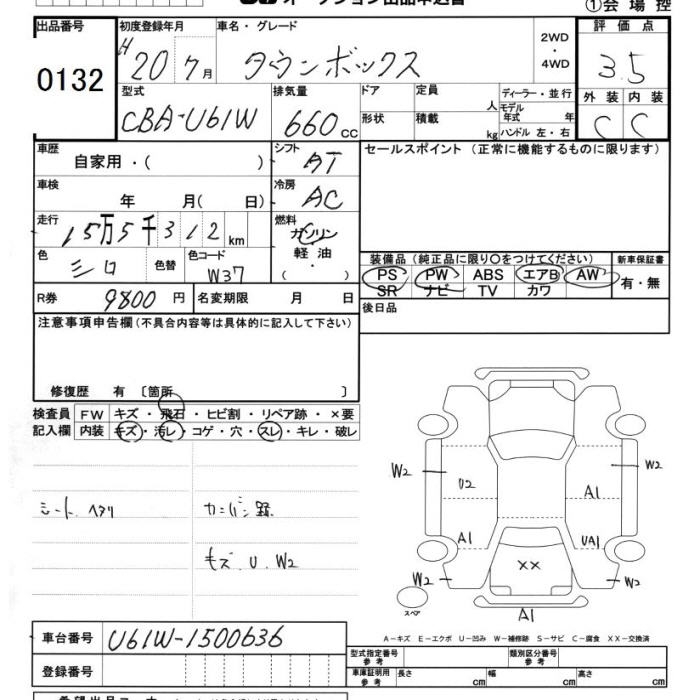 オークション出品申込書 ①会場控
出品番号 初度登録年月 車名・グレード 2WD ・ 4WD 評価点
0132 H20 7月 タウンボックス 3.5
型式 排気量 ドア 定員 人 ディーラー・並行 外装 内装
CBA-U61W 660cc 形状 積載 kg モデル年式 年 ハンドル 左・右 C C
車歴 自家用・( ) シフト AT セールスポイント(正常に機能するものに限ります)
車検 年 月( 日) 冷房 AC
走行 15万5千312km 燃料 ガソリン 軽油 ・( )
色 シロ 色替 色コード W37
装備品(純正品に限り〇をつけてください) 新車保証書
PS PW ABS エアB AW 有・無
SR ナビ TV カワ
R券 9800円 名変期限 月 日 後日品
注意事項申告欄(不具合内容等は具体的に記入して下さい)
修復歴 有 〔箇所 〕
検査員 FW キズ・飛石・ヒビ割・リペア跡・×要
記入欄 内装 キズ・汚レ・コゲ・穴・スレ・キレ・破レ
W2 U2 A1 W2
シート ヘタリ カンバン跡
A1 UA1
キズ.U.W2
W2 XX W2
スペア A1
A−キズ E−エクボ U−凹み W−補修跡 S−サビ C−腐食 XX−交換済
車台番号 U61W-1500636
型式指定番号 参考 類別区分番号 参考
登録番号 車庫証明用 参考 長さ cm 幅 cm 高さ cm